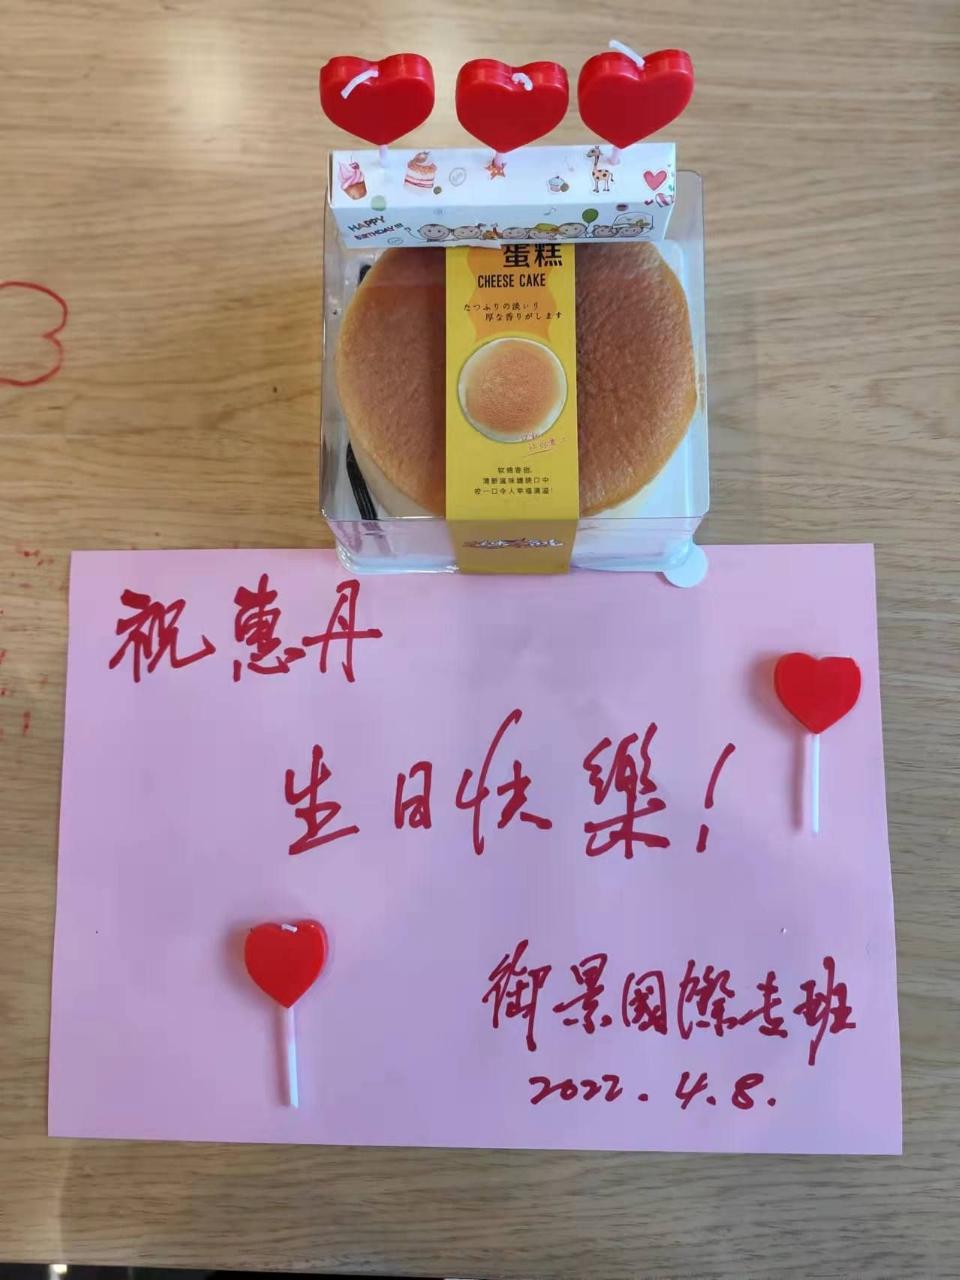 HAPPY
BIRTHDAY!!!
蛋糕
CHEESE CAKE
たつふりの淡ぃり
厚な香りがします
软绵香甜,
清新滋味纏繞口中
咬一口令人幸福滿溢!
祝惠丹
生日快樂!
御景國際专班
2022.4.8.